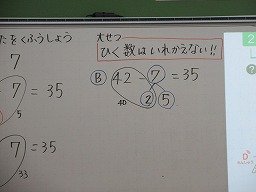 たをくふうしよう
7
7 = 35
5
7 = 35
33
大せつ
ひく数はいれかえない!!
B 42 - 7 = 35
40 2 5
2
?